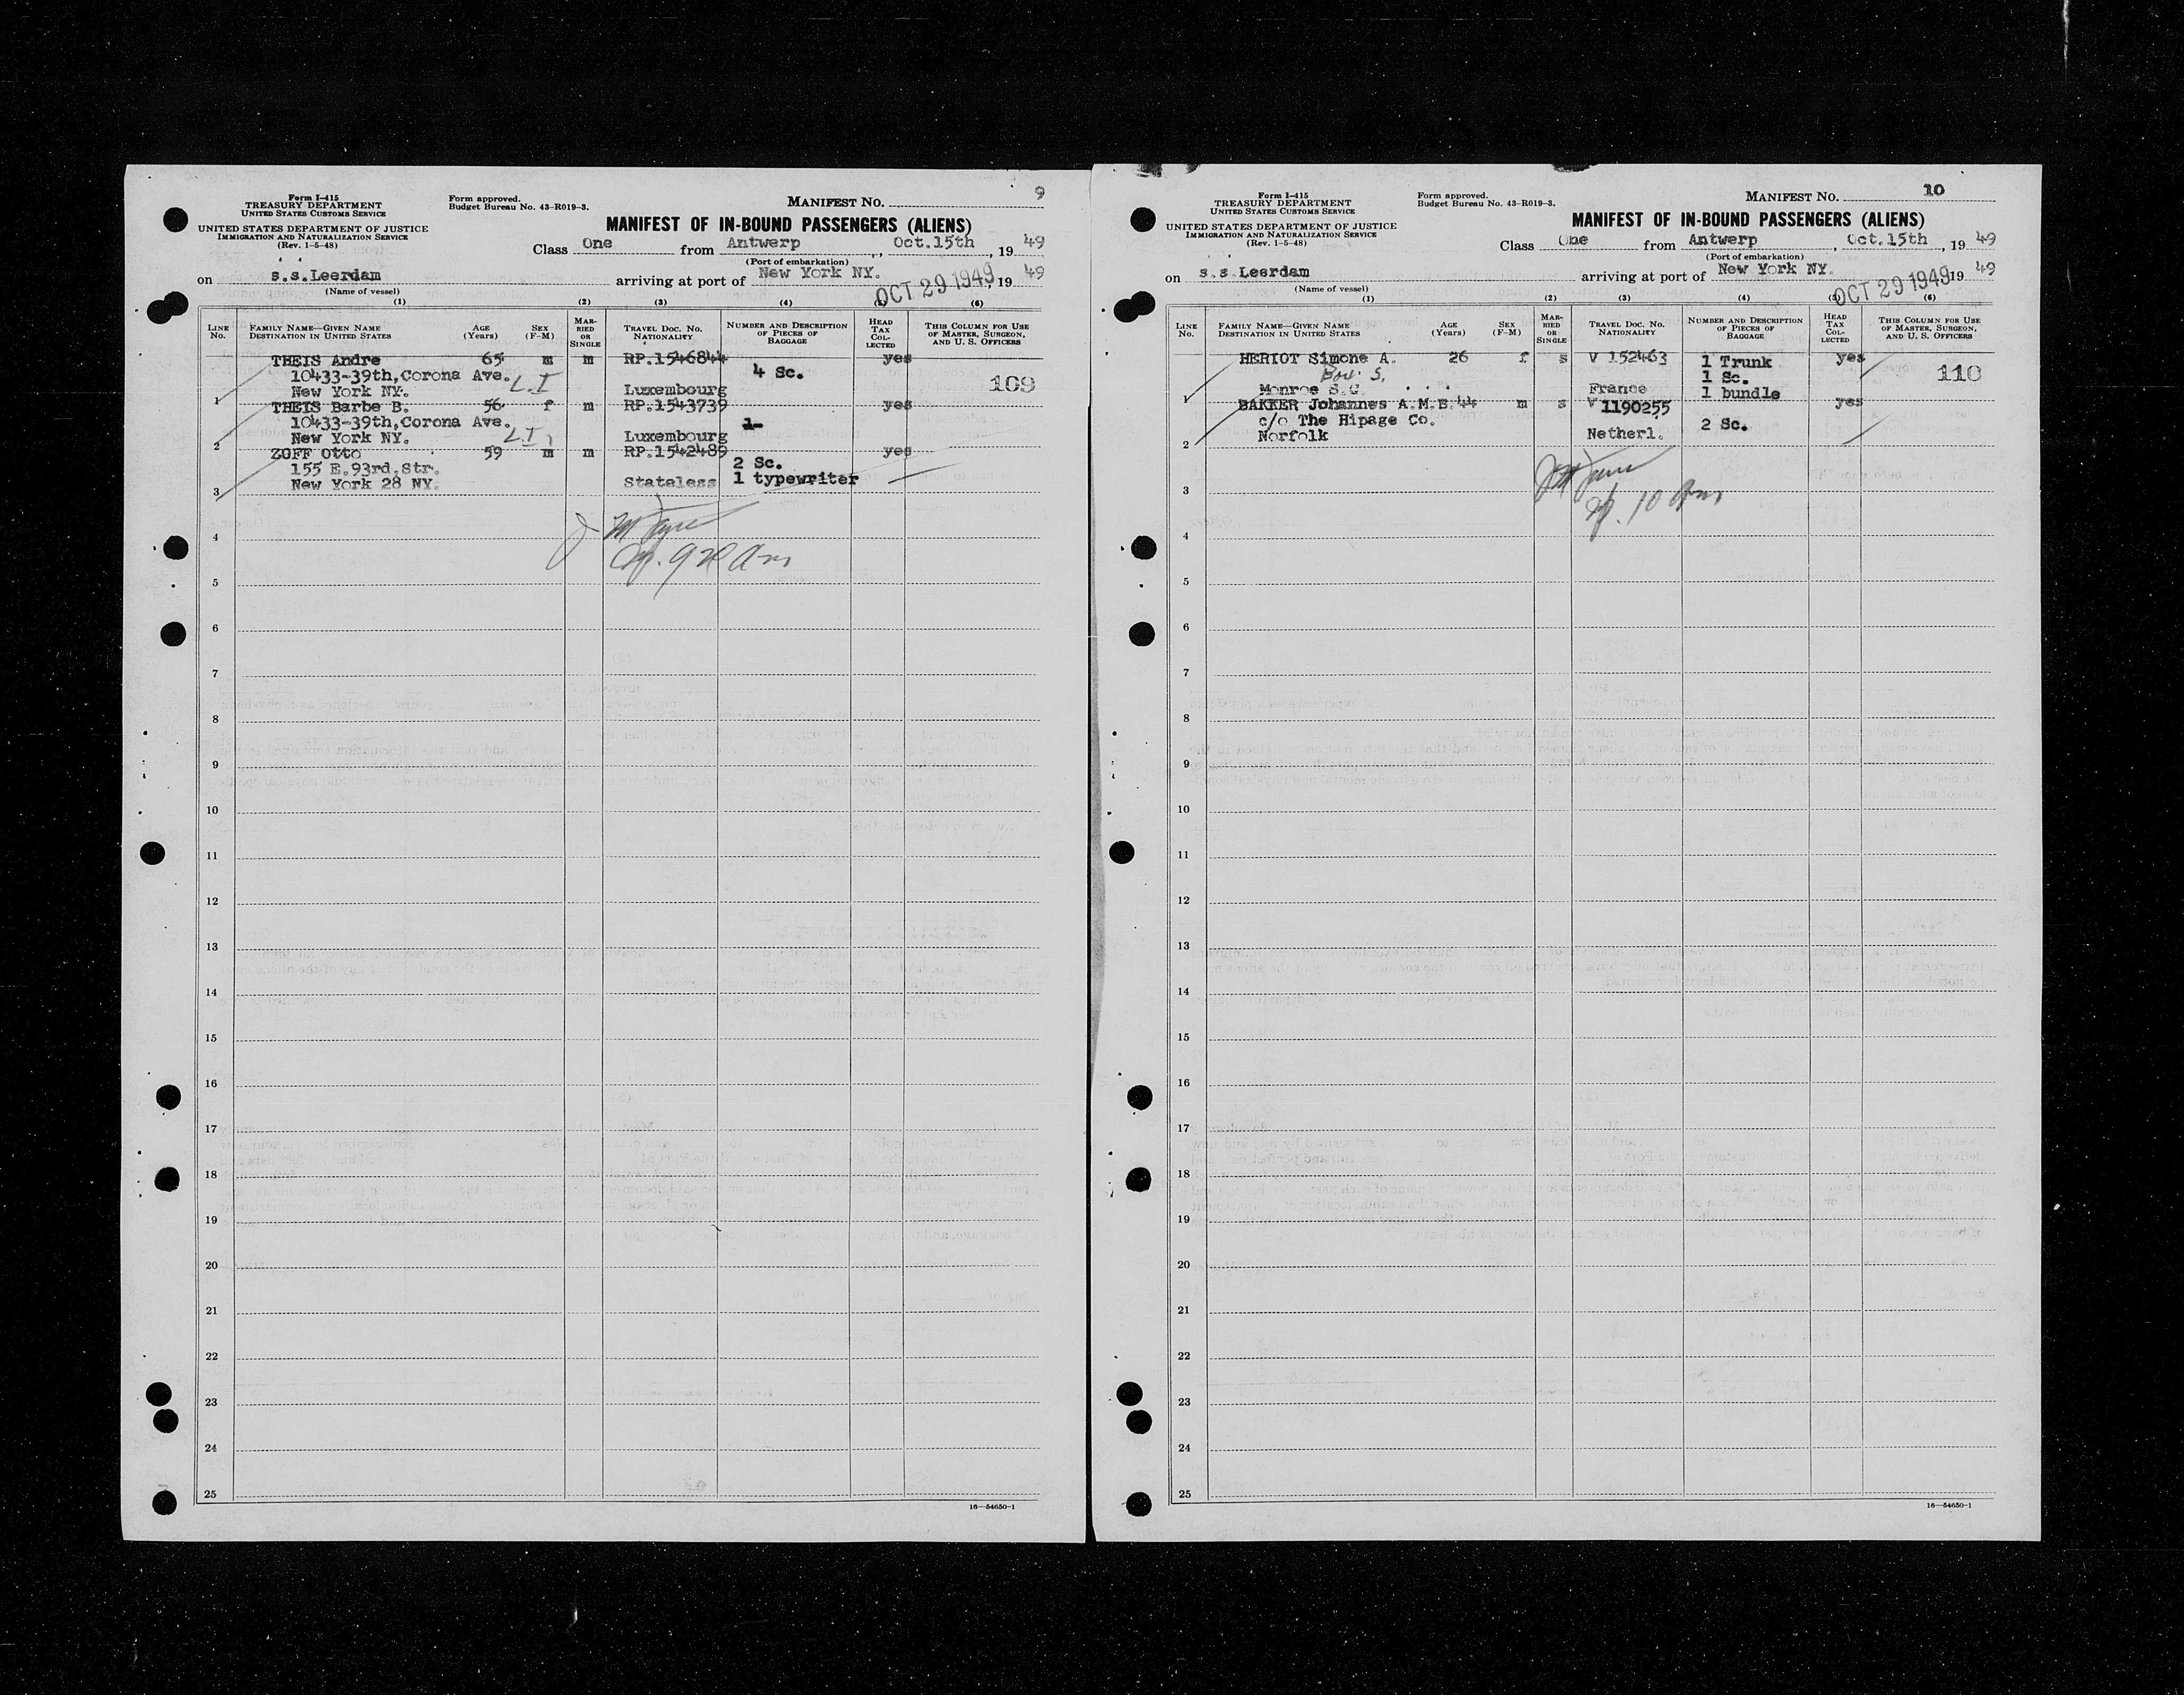 Form I-415
TREASURY DEPARTMENT
UNITED STATES CUSTOMS SERVICE
UNITED STATES DEPARTMENT OF JUSTICE
IMMIGRATION AND NATURALIZATION SERVICE
(Rev. 1-5-48)
Form approved.
Budget Bureau No. 43-R019-3.
MANIFEST NO. 9
MANIFEST OF IN-BOUND PASSENGERS (ALIENS)
Class One from Antwerp, Oct.15th, 19 49
(Port of embarkation)
on s.s.Leerdam arriving at port of New York NY. OCT 29 1949, 19 49
(Name of vessel)
(1) (2) (3) (4) (5) (6)
LINE NO. FAMILY NAME—GIVEN NAME DESTINATION IN UNITED STATES AGE (Years) SEX (F-M) MARRIED OR SINGLE TRAVEL DOC. NO. NATIONALITY NUMBER AND DESCRIPTION OF PIECES OF BAGGAGE HEAD TAX COLLECTED THIS COLUMN FOR USE OF MASTER, SURGEON, AND U. S. OFFICERS
THEIS Andre 65 m m RP.1546844 yes
10433-39th,Corona Ave. L.I 4 Sc. 109
1 New York NY. Luxembourg
THEIS Barbe B. 56 f m RP.1543739 yes
10433-39th,Corona Ave. 1-
2 New York NY. L.I. Luxembourg
ZOFF Otto 59 m m RP.1542489 yes
155 E.93rd.Str. 2 Sc.
3 New York 28 NY. Stateless 1 typewriter
4
920 Am
5
6
7
8
9
10
11
12
13
14
15
16
17
18
19
20
21
22
23
24
25
16—54650-1
Form I-415
TREASURY DEPARTMENT
UNITED STATES CUSTOMS SERVICE
UNITED STATES DEPARTMENT OF JUSTICE
IMMIGRATION AND NATURALIZATION SERVICE
(Rev. 1-5-48)
Form approved.
Budget Bureau No. 43-R019-3.
MANIFEST NO. 10
MANIFEST OF IN-BOUND PASSENGERS (ALIENS)
Class One from Antwerp, Oct.15th, 19 49
(Port of embarkation)
on s.s.Leerdam arriving at port of New York NY. OCT 29 1949 19 49
(Name of vessel)
(1) (2) (3) (4) (5) (6)
LINE NO. FAMILY NAME—GIVEN NAME DESTINATION IN UNITED STATES AGE (Years) SEX (F-M) MARRIED OR SINGLE TRAVEL DOC. NO. NATIONALITY NUMBER AND DESCRIPTION OF PIECES OF BAGGAGE HEAD TAX COLLECTED THIS COLUMN FOR USE OF MASTER, SURGEON, AND U. S. OFFICERS
HERIOT Simone A. 26 f s V 152463 1 Trunk yes
1 Sc. 110
1 Monroe S.C France 1 bundle
BAKKER Johannes A.M.B. 44 m s V 1190255 yes
c/o The Hipage Co. 2 Sc.
2 Norfolk Netherl.
3
10 Am
4
5
6
7
8
9
10
11
12
13
14
15
16
17
18
19
20
21
22
23
24
25
16—54650-1